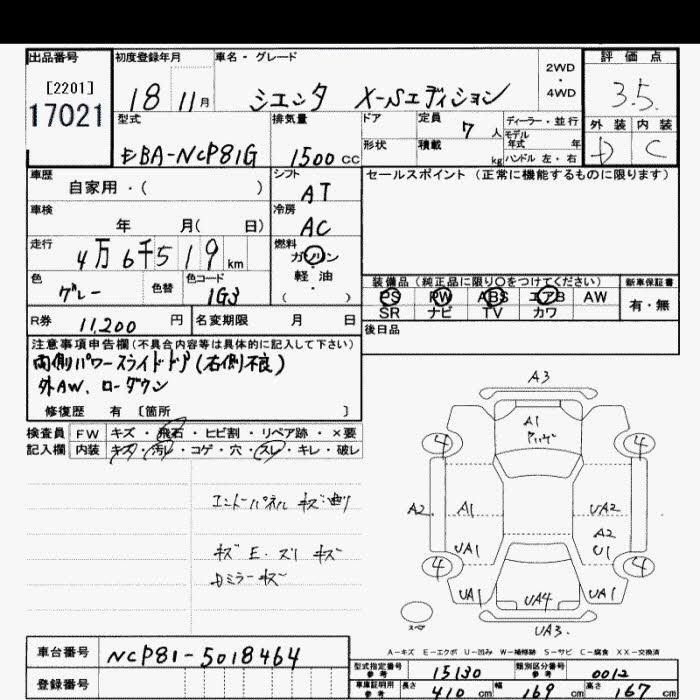 出品番号
[2201]
17021
初度登録年月
18 11月
車名・グレード
シエンタ X-Sエディション
2WD
・
4WD
評価点
3.5
外装 内装
D C
型式
EBA-NCP81G
排気量
1500 cc
ドア
定員 7 人
形状
積載 kg
ディーラー・並行
モデル年式 年
ハンドル 左・右
車歴
自家用・( )
シフト
AT
セールスポイント (正常に機能するものに限ります)
車検
年 月( 日)
冷房
AC
走行
4万6千519 km
燃料
ガソリン
軽・油
( )
色
グレー
色替
色コード
1G3
装備品 (純正品に限り○をつけてください)
新車保証書
PS PW ABS エアB AW
SR ナビ TV カワ
有・無
R券 11,200 円
名変期限 月 日
後日品
注意事項申告欄(不具合内容等は具体的に記入して下さい)
両側パワースライドドア(右側不良)
外AW、ローダウン
修復歴 有 [箇所 ]
検査員 FW キズ・飛石・ヒビ割・リペア跡・×要
記入欄 内装 キズ・汚レ・コゲ・穴・スレ・キレ・破レ
エンドパネル キズ・曲り
キズ E・ズリ キズ
Dミラーキズ
A3
A1
4 4
A2 A1 UA2
A2
UA1 U1
4 4
UA1 UA4 UA1
スペア
UA3
A-キズ E-エクボ U-凹み W-補修跡 S-サビ C-腐食 XX-交換済
車台番号 NCP81-5018464
登録番号
型式指定番号 参考 15130
類別区分番号 参考 0012
車庫証明用 参考 長さ 410 cm 幅 169 cm 高さ 167 cm